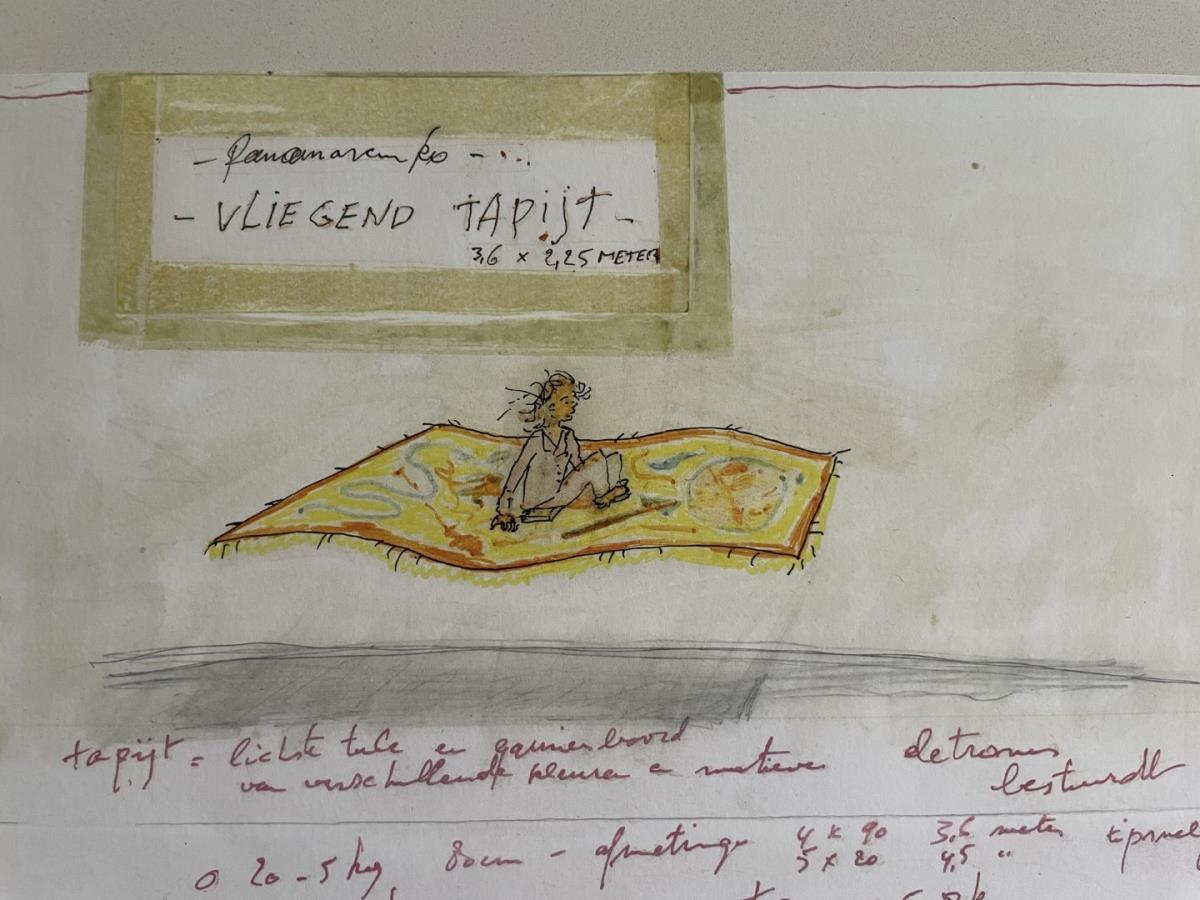 - Panamarenko -
- VLIEGEND TAPIJT -
3,6 x 2,25 METER
tapijt = lichte tule en
van verschillende kleuren en motieven
bestuurdt
20 - 5 kg 80cm - afmetinge 4 x 90 3,6 meter
5 x 20 4,5 "